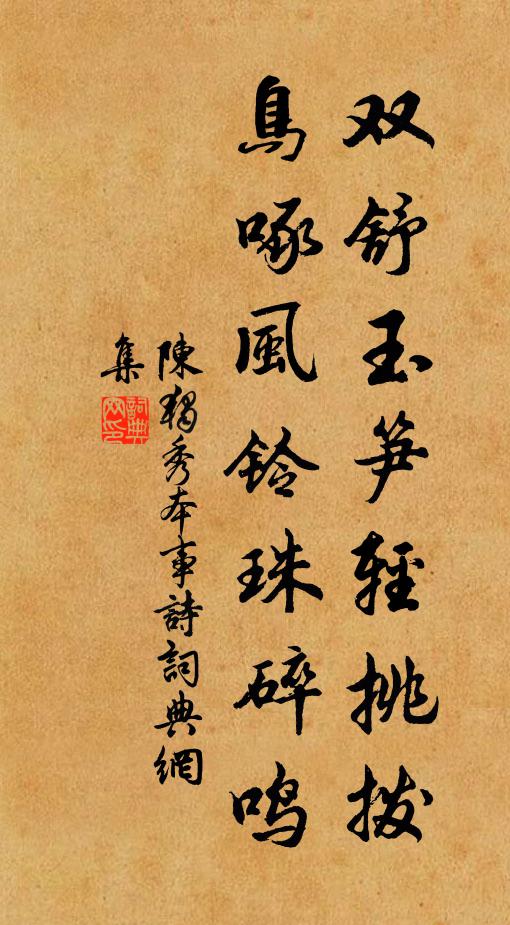 双舒玉笋轻挑拨
鳥啄風鈴珠碎鸣
陳獨秀本事詩詞典網
集
詞典
网印